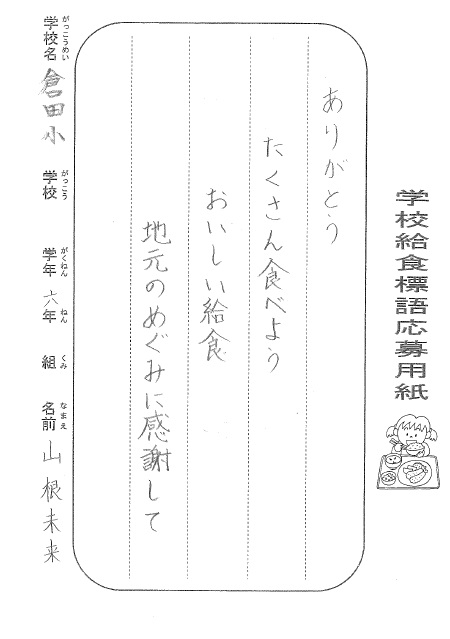 学校給食標語応募用紙
ありがとう
たくさん食べよう
おいしい給食
地元のめぐみに感謝して
学校名 倉田小 学校 学年 六年 組 名前 山根未来
がっこうめい がっこう がくねん ねん くみ なまえ